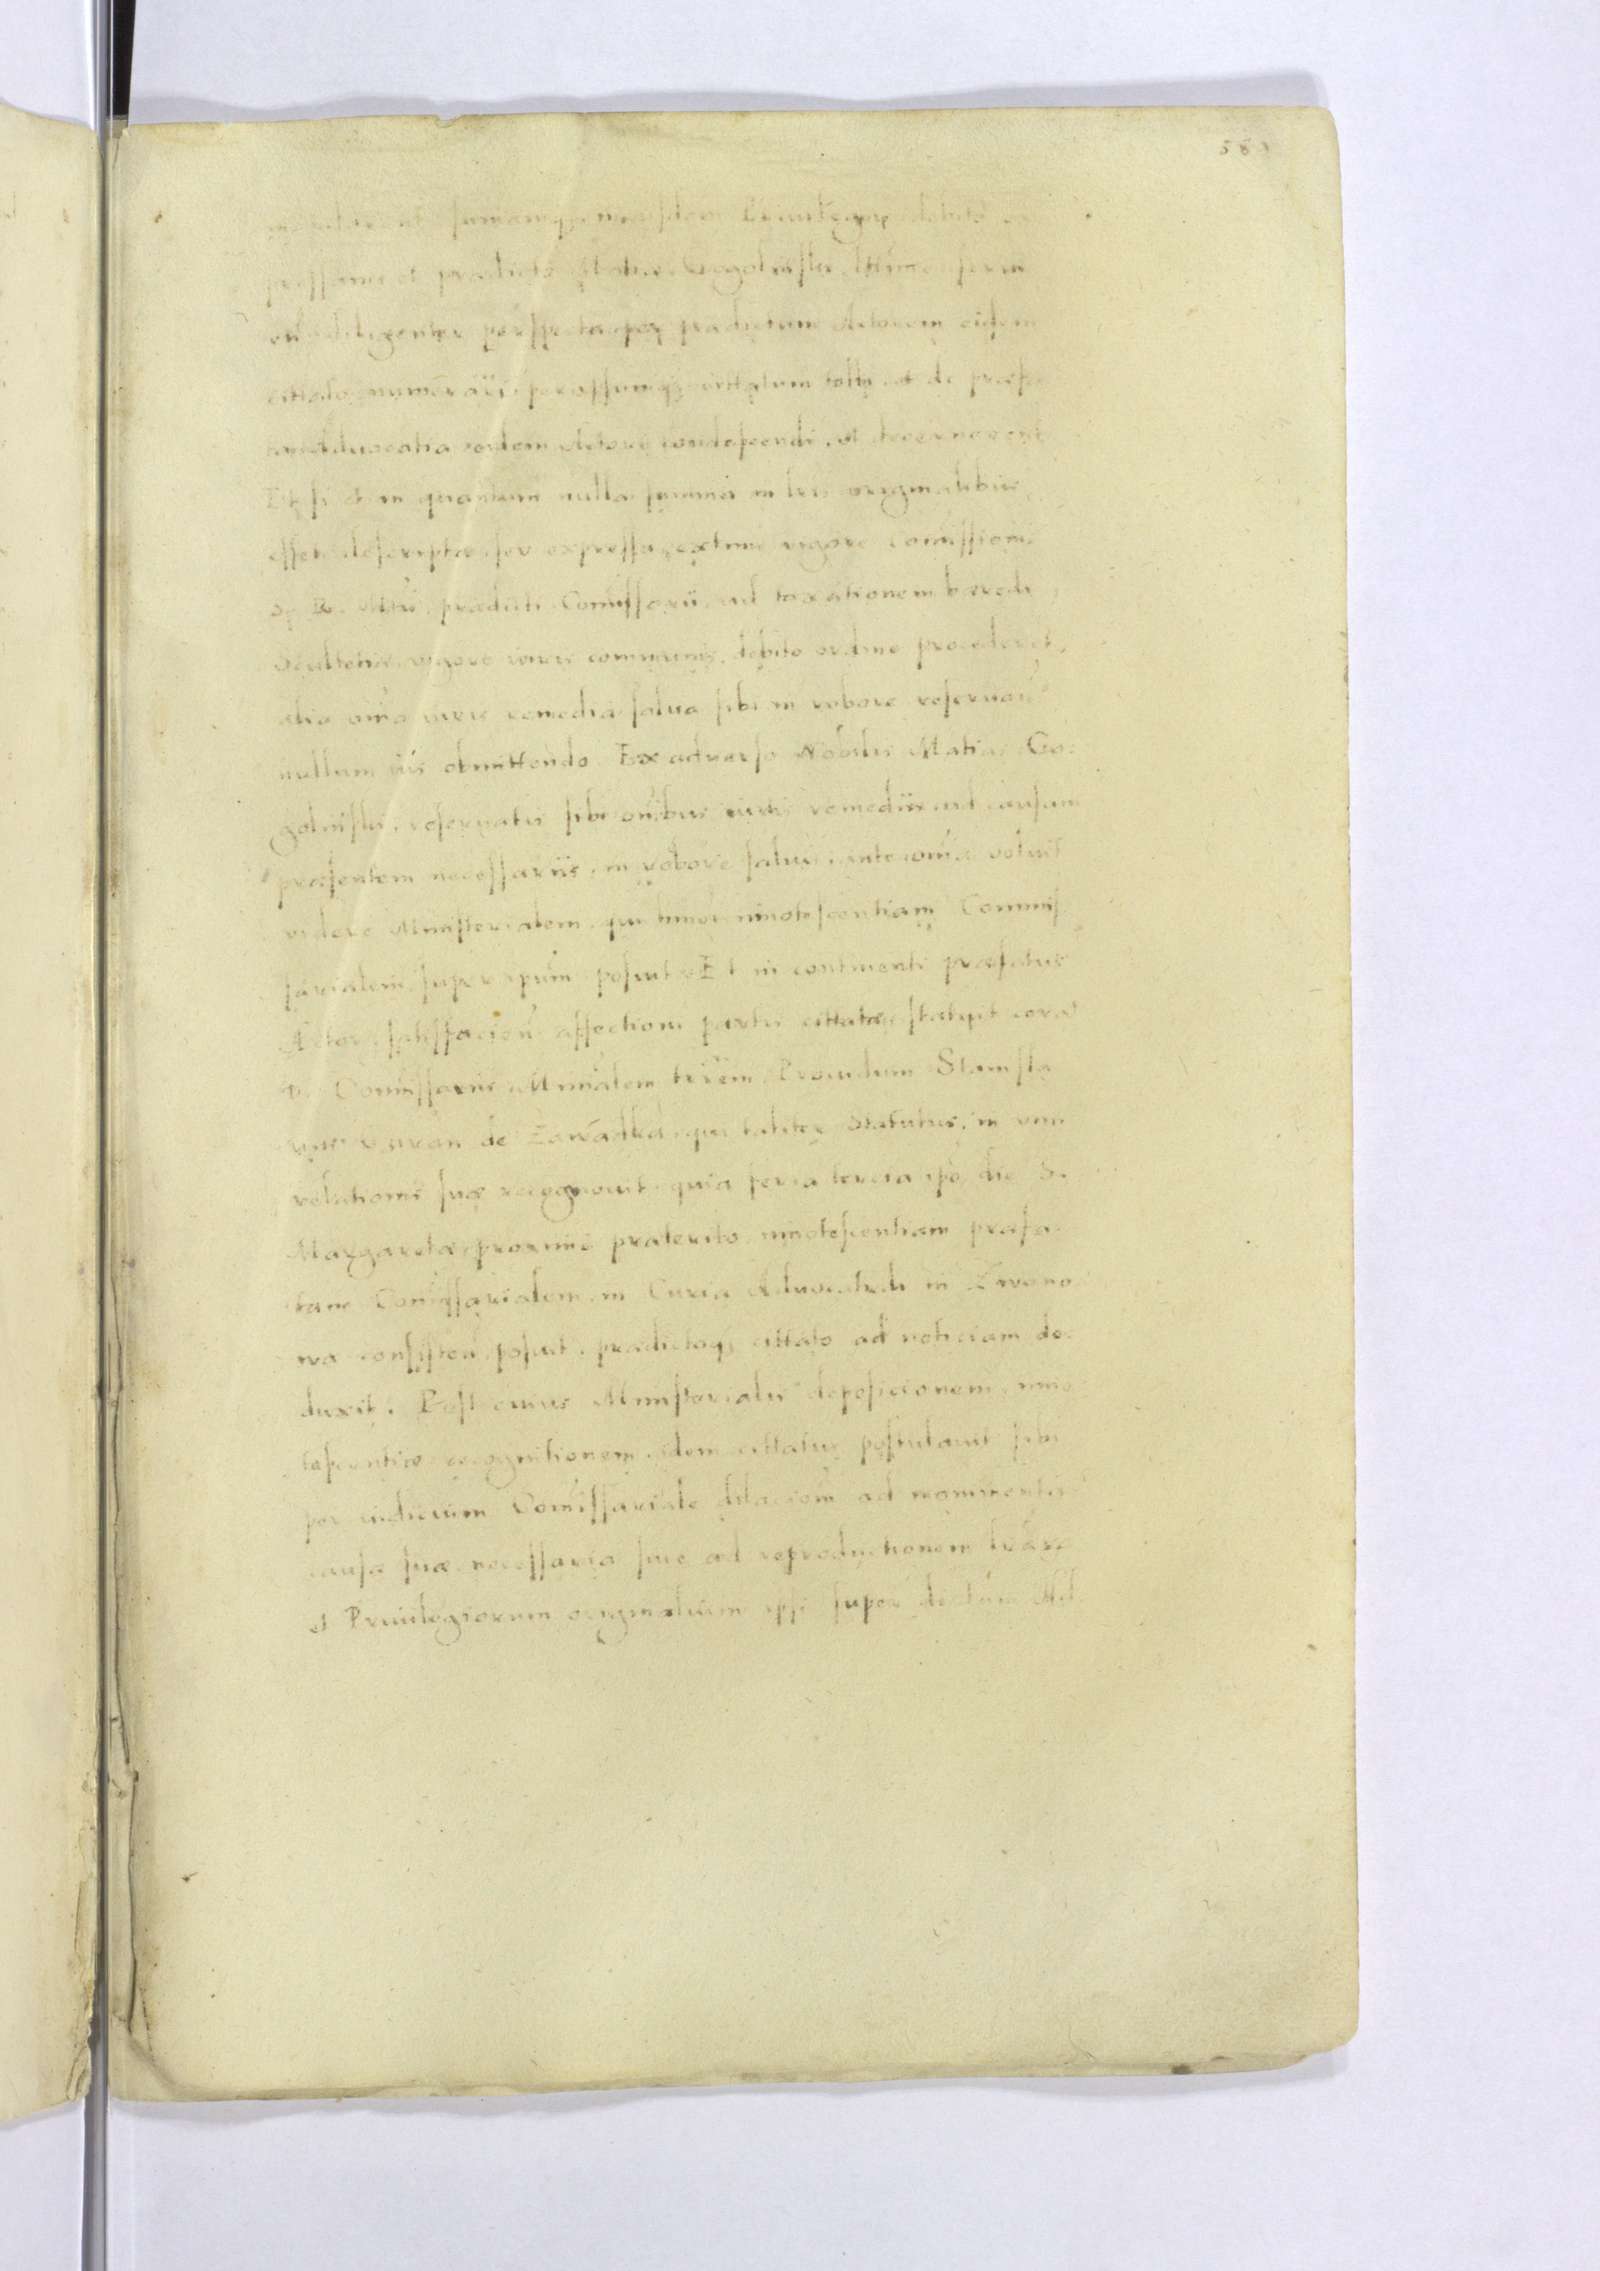 580
summamq3 in eisdem Priuilegiis debite ex
pressam et prædicto Matiæ Gogolinski
diligenter perspecta per prædictum Actorem eidem
cittato numerari, perassumq3 cittatum tolli, et de præfa
ta Aduocatia eidem Actori condescendi, vt decernerent
Et si et in quantum nulla summa in lris originalibus
esset descripta seu expressa, extunc vigore Comissionis
S. R. Mtis, prædicti Comissarii ad taxationem hæredi
Scultetiæ vigore iuris communis, debito ordine procederet,
alia oīa iuris remedia salua sibi in robore reseruan
nullum iis obmittendo. Ex aduerso Nobilis Matias Go
golinski, reseruatis sibi oībus iuris remediis ad causam
præsentem necessariis, in robore saluis, ante omīa voluit
videre Ministerialem, qui huiusmodi innotescentiam Commis
sarialem super ipsum posuit. Et in continenti præfatus
Actor, satisfacien affectioni partis cittatæ, statuit corā
D. Comissariis Minīalem trrēm Prouidum Stanisla
um de Zawadka, qui taliter statutus, in vim
relationis suæ recognouit, quia feria tercia ipso die S.
Margaretæ proxime præterito innotescentiam præfa
tam Comissarialem, in Curia Aduocatiali in Zwano
wa consisten posuit, prædictoq3 cittato ad noticiam de
duxit. Post cuius Ministerialis deposicionem, inno
tescentiæ recognitionem, idem cittatus postulauit sibi
per iudicium Comissariale dilacionem ad munimenta
causæ suæ necessaria siue ad reproductionem lrarum
et Priuilegiorum originalium ipsi super dictam Ad